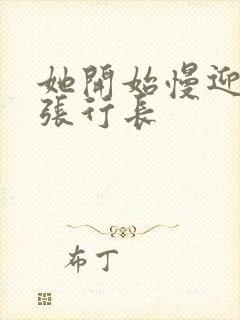 她開始慢迎
張行長
布丁